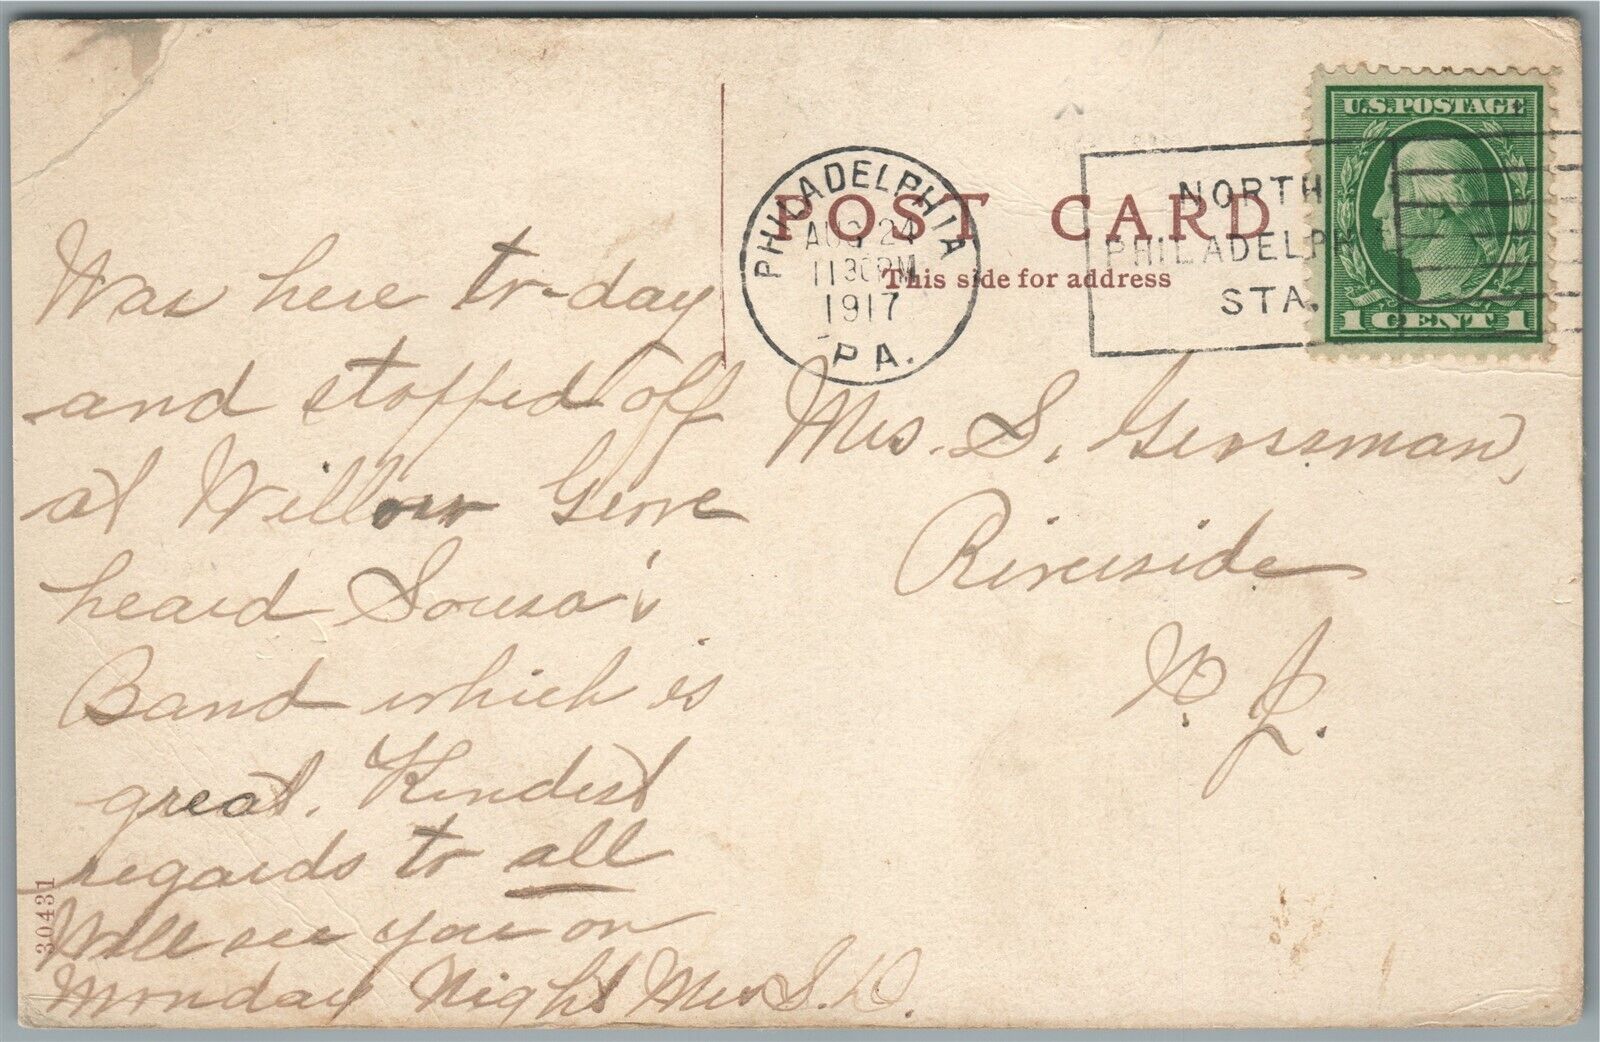 Was here to-day
and stopped off
at Willow Grove
heard Sousa's
Band which is
great. Kindest
regards to all
Will see you on
Monday Night Mrs S. D.
30431
POST CARD
This side for address
PHILADELPHIA
AUG 24
11 30 PM
1917
PA.
NORTH
PHILADELPH
STA.
U.S. POSTAGE
1 CENT 1
Mrs. S.
Riverside
N. J.